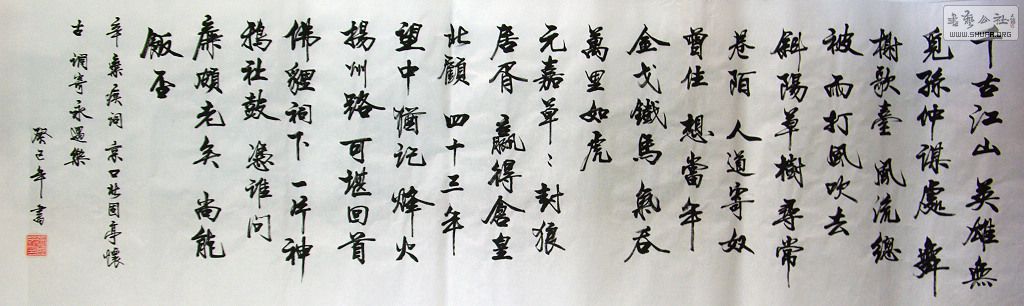 千古江山 英雄無
覓孫仲謀處 舞
榭歌臺 風流總
被雨打風吹去
斜陽草樹 尋常
巷陌 人道寄奴
曾住 想當年
金戈鐵馬 氣吞
萬里如虎
元嘉草〻 封狼
居胥 贏得倉皇
北顧 四十三年
望中猶記 烽火
揚州路 可堪回首
佛貍祠下 一片神
鴉社鼓 憑誰問
廉頗老矣 尚能
飯否
辛棄疾詞 京口北固亭懷
古 調寄永遇樂
癸巳年書
書藝公社
WWW.SHUFA.ORG